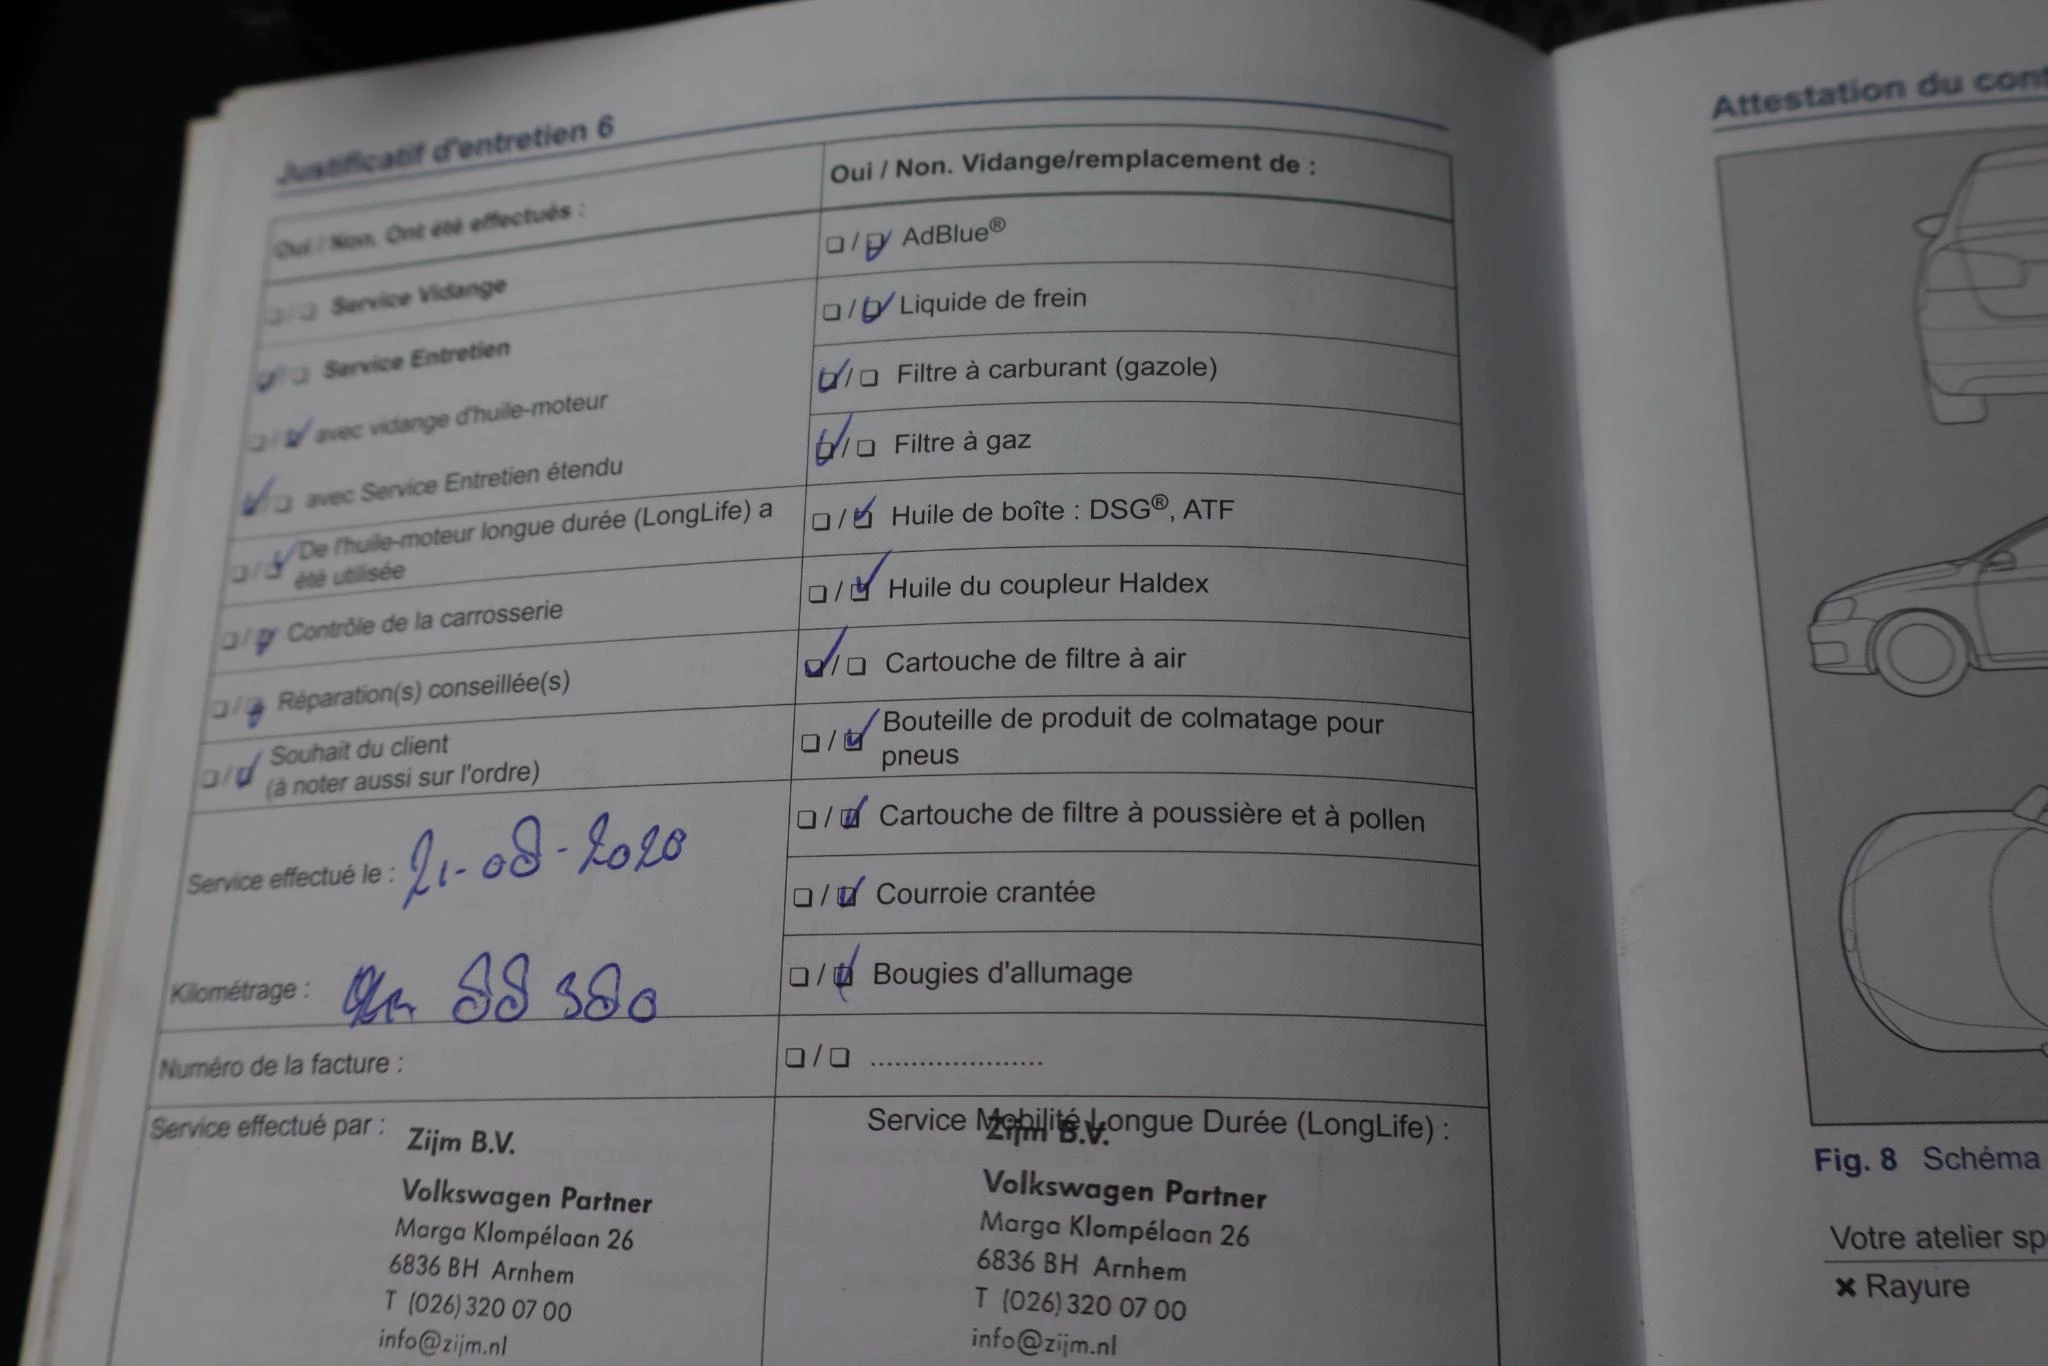 Justificatif d'entretien 6
Oui / Non. Ont été effectués :
Service Vidange
Service Entretien
avec vidange d'huile-moteur
avec Service Entretien étendu
De l'huile-moteur longue durée (LongLife) a
été utilisée
Contrôle de la carrosserie
Réparation(s) conseillée(s)
Souhait du client
(à noter aussi sur l'ordre)
Service effectué le : 21-08-2020
Kilométrage : 88 380
Numéro de la facture :
Service effectué par :
Zijm B.V.
Volkswagen Partner
Marga Klompélaan 26
6836 BH Arnhem
T (026) 320 07 00
info@zijm.nl
Oui / Non. Vidange/remplacement de :
AdBlue®
Liquide de frein
Filtre à carburant (gazole)
Filtre à gaz
Huile de boîte : DSG®, ATF
Huile du coupleur Haldex
Cartouche de filtre à air
Bouteille de produit de colmatage pour
pneus
Cartouche de filtre à poussière et à pollen
Courroie crantée
Bougies d'allumage
.....................
Service Mobilité Longue Durée (LongLife) :
Zijm B.V.
Volkswagen Partner
Marga Klompélaan 26
6836 BH Arnhem
T (026) 320 07 00
info@zijm.nl
Attestation du
Fig. 8 Schéma
Votre atelier
× Rayure